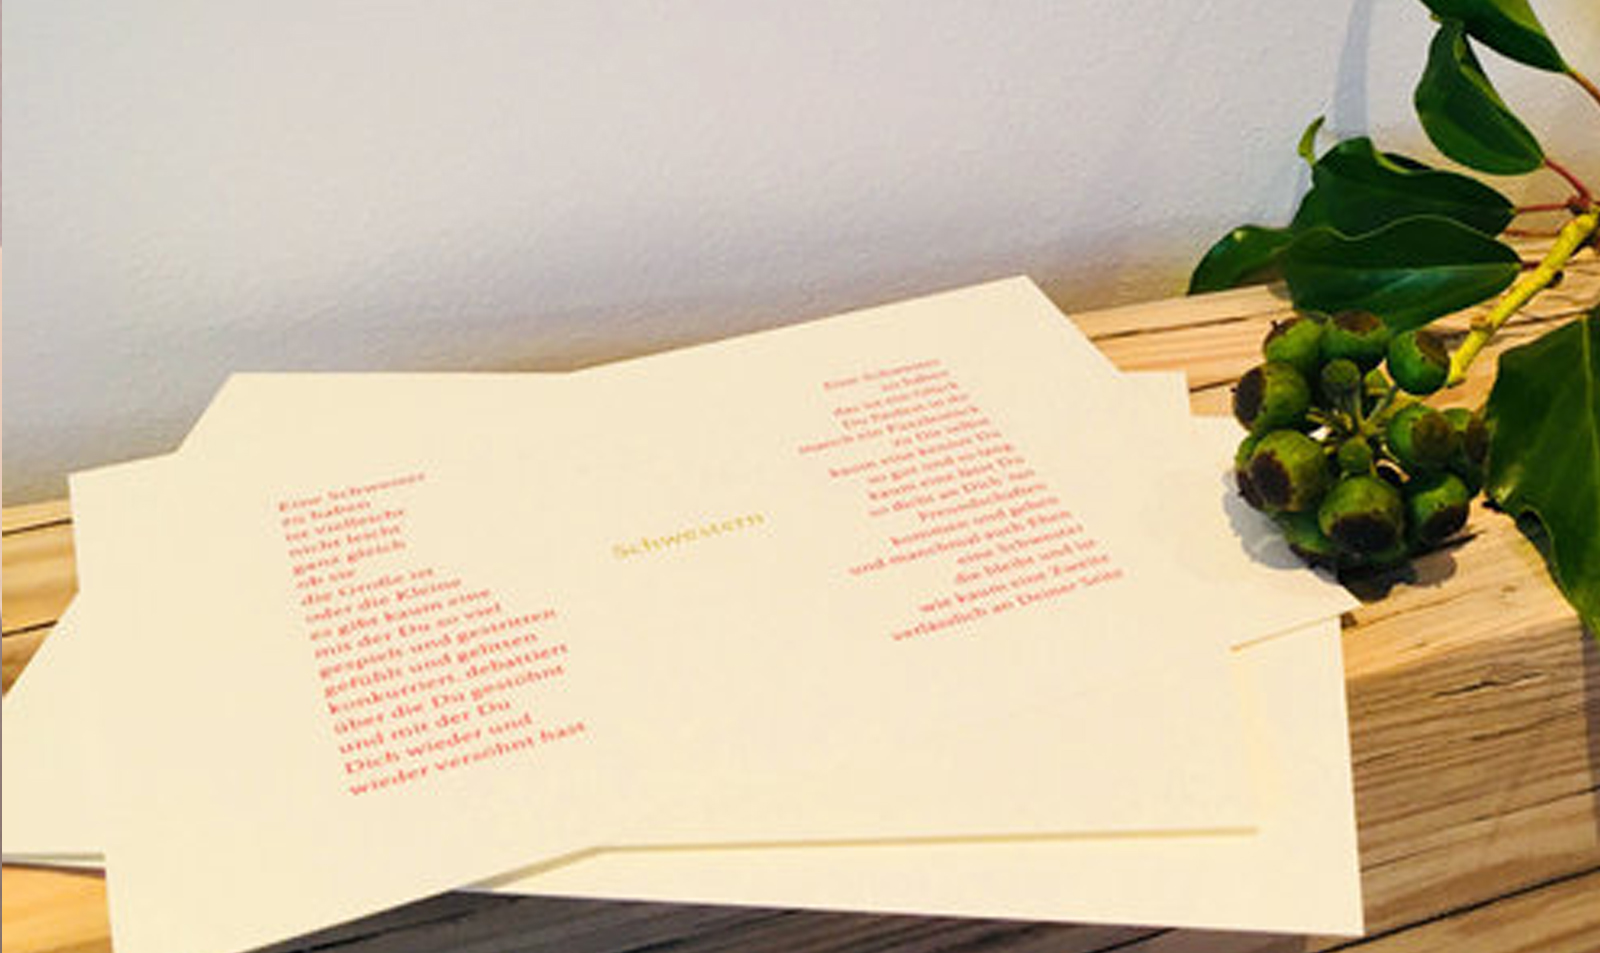 Eine Schwester
zu haben
ist vielleicht
nicht leicht
ganz gleich
ob sie
die Große ist
oder die Kleine
es gibt kaum eine
mit der Du so viel
gespielt und gestritten
gefühlt und gelitten
konkurriert, debattiert
über die Du gestöhnt
und mit der Du
Dich wieder und
wieder versöhnt hast
Schwestern
Eine Schwester
zu haben
das ist ein Glück
Du findest in ihr
manch ein Puzzlestück
zu Dir selbst
kaum eine kennst Du
so gut und so lang
kaum eine lässt Du
so dicht an Dich ran
Freundschaften
kommen und gehen
und manchmal auch Ehen
eine Schwester
die bleibt und ist
wie kaum eine Zweite
verlässlich an Deiner Seite